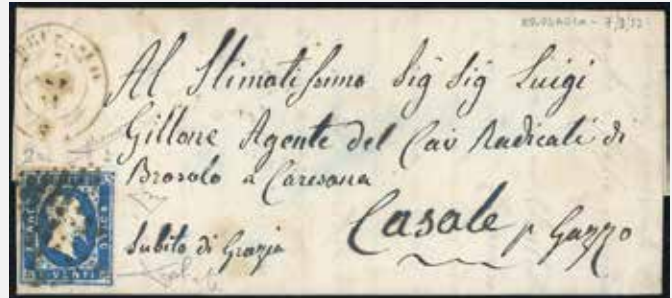 7/3/52
Al Stimatissimo Sig Sig Luigi
Gillone Agente del Cav Radicati di
Brosolo a Caresana
Casale p Gazzo
Subito di Grazia
VENTI